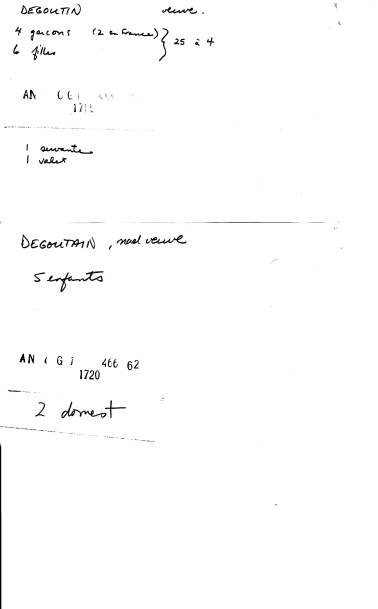 DEGOUTIN veuve.
4 garcons (2 en France) } 25 à 4
6 filles
AN C G 1
1715
1 servante
1 valet
DEGOUTAIN, mad veuve
5 enfants
AN C G 1 466 62
1720
2 domest